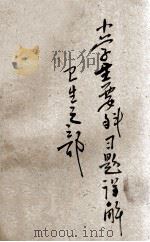 小学生要科习题详解
卫生之部